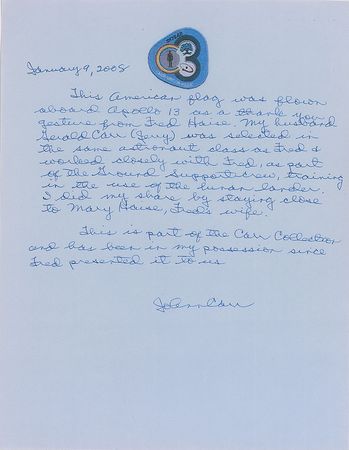 January 9, 2008
This American flag was flown
aboard Apollo 13 as a thank you
gesture from Fred Haise. My husband
Gerald Carr (Jerry) was selected in
the same astronaut class as Fred &
worked closely with Fred, as part
of the Ground Support crew, training
in the use of the lunar lander.
I did my share by staying close
to Mary Haise, Fred's wife.
This is part of the Carr Collection
and has been in my possession since
Fred presented it to us
JoAnn Carr